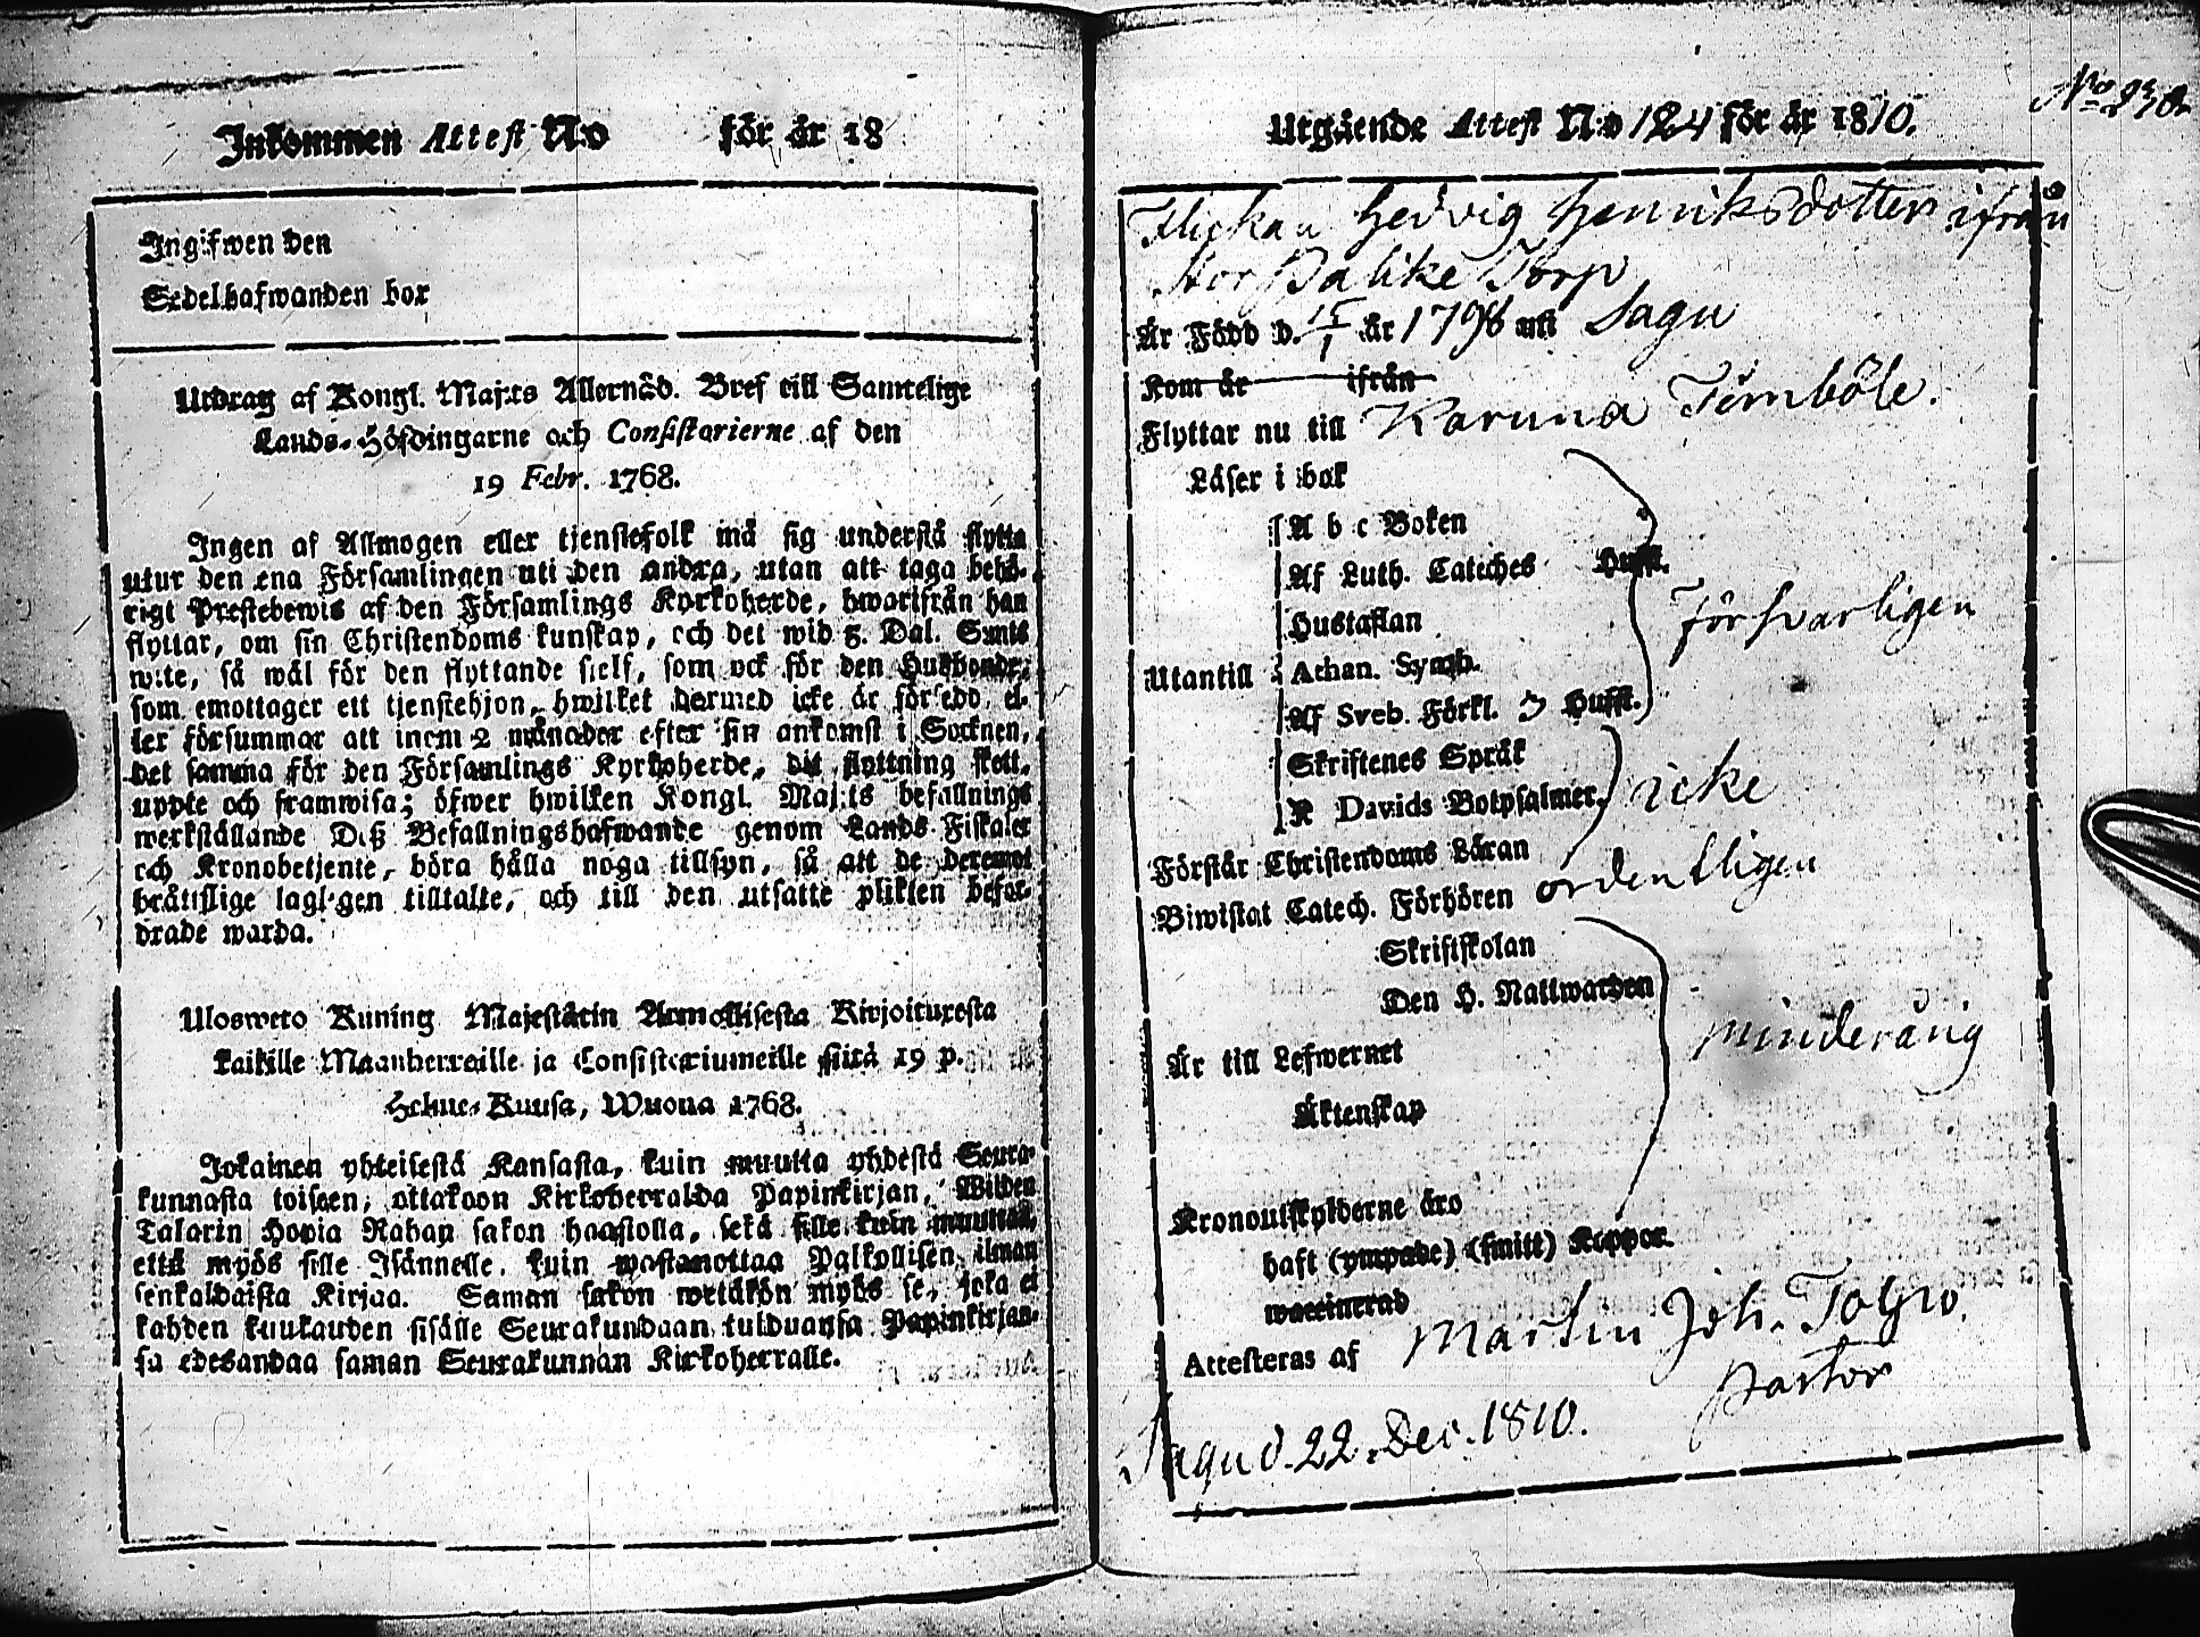 Inkommen Attest N:o för år 18
Ingifwen den
Sedelhafwanden bor
Utdrag af Kongl. Maj:ts Allernåd. Bref till Samtelige
Lands-Höfdingarne och Consistorierne af den
19 Febr. 1768.
Ingen af Allmogen eller tjenstefolk må sig understå flytta
utur den ena Församlingen uti den andra, utan att taga behö-
rigt Prestebewis af den Församlings Kyrkoherde, hwarifrån han
flyttar, om sin Christendoms kunskap, och det wid 5. Dal. S:mts
wite, så wäl för den flyttande sielf, som ock för den Husbonde,
som emottager ett tjenstehjon, hwilket dermed icke är försedd, el-
ler försummar att inom 2 månader efter sin ankomst i Socknen,
det samma för den Församlings Kyrkoherde, dit flyttning skett,
uppte och framwisa; öfwer hwilken Kongl. Maj:ts befallnings
werkställande Deß Befallningshafwande genom Lands Fiskaler
och Kronobetjente, böra hålla noga tillsyn, så att de deremot
bråttslige lagligen tilltalte, och till den utsatte plikten befor-
drade warda.
Ulosweto Kuning Majestätin Armollisesta Kirjoituxesta
kaikille Maanherraille ja Consistoriumeille siitä 19 p.
Helme-Kuusa, Wuona 1768.
Jokainen yhteisestä Kansasta, kuin muutta yhdestä Seura-
kunnasta toiseen, ottakoon Kirkoherralda Papinkirjan, Wiiden
Talarin Hopia Rahan sakon haastolla, sekä sille kuin muuttaa,
että myös sille Isännelle, kuin wastanottaa Palkollisen ilman
senkaldaista Kirjaa. Saman sakon wetäkön myös se, joka ei
kahden kuukauden sisälle Seurakundaan tulduansa Papinkirjan-
sa edesandaa saman Seurakunnan Kirkoherralle.
No 230
Utgående Attest N:o 124 för år 1810.
Flickan Hedvig Henriksdotter ifrån
Stor Palike Torp
Är Född d. 15/1 år 1798 uti Sagu
Kom år ifrån
Flyttar nu till Karuna Timböle.
Läser i bok
A b c Boken
Af Luth. Cateches Hufst.
Hustaflan försvarligen
Utantill Athan. Symb.
Af Sveb. Förkl. 3 Hufst.
Skriftenes Språk
K Davids Botpsalmer. icke
Förstår Christendoms Läran
Biwistat Catech. Förhören ordentligen
Skriftskolan
Den H. Nattwarden
minderårig
Är till Lefwernet
Äktenskap
Kronoutskylderne äro
haft (ympade) (smitt) Koppor.
waccinerad
Attesteras af Martin Joh. Tolpo.
Pastor
Sagu d. 22. Dec. 1810.